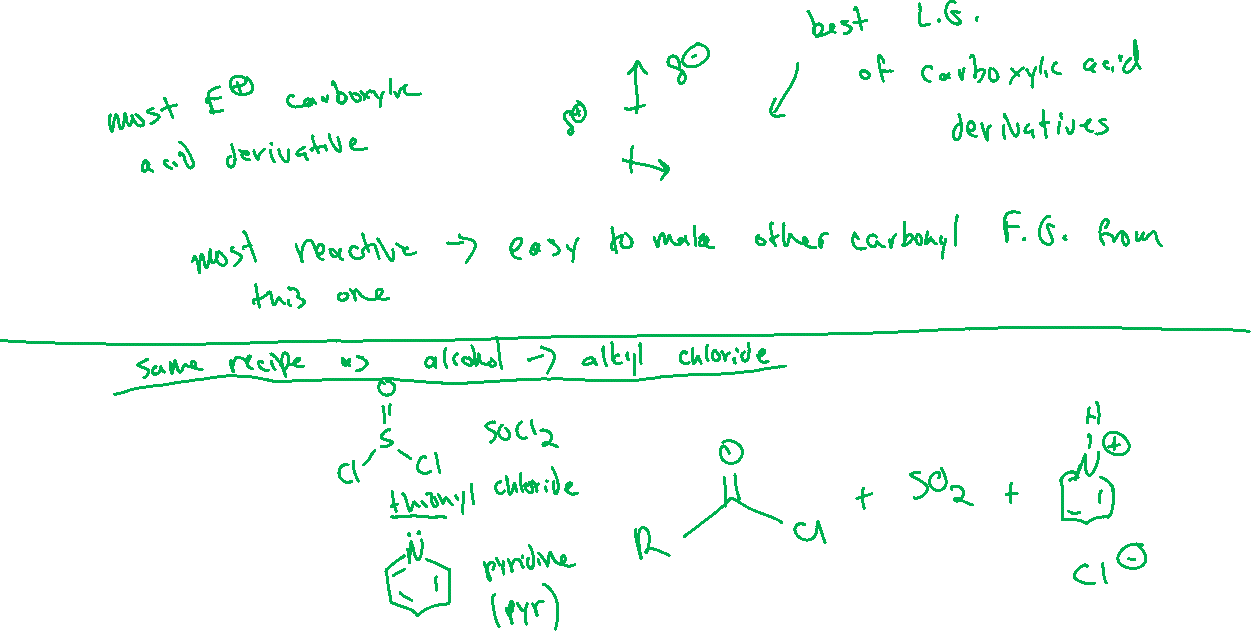 best L.G.
of carboxylic acid
derivatives
most E⊕ carboxylic
acid derivative
δ⊕
δ⊖
most reactive → easy to make other carbonyl F.G. from
this one
same recipe as alcohol → alkyl chloride
O
S
Cl Cl
SOCl2
thionyl chloride
N
pyridine
(pyr)
O
R Cl + SO2 +
H
N ⊕
Cl ⊖